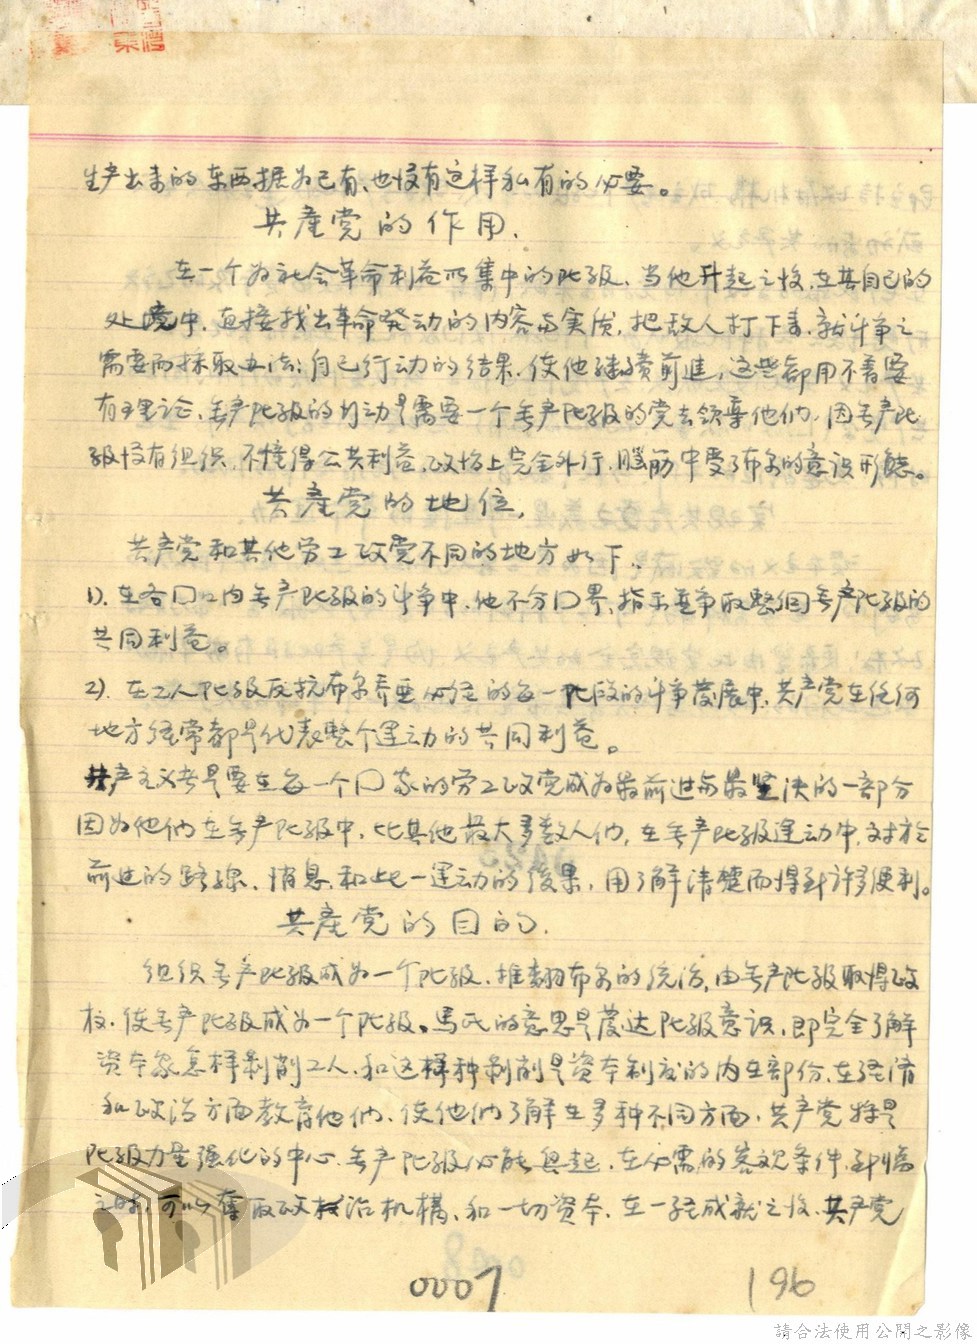 生产出来的东西据为己有、也没有这样私有的必要。
共産党的作用.
在一个为社会革命利益所集中的阶级、当他升起之後、在其自己的
处境中、直接找出革命発动的内容与实质,把敌人打下去、就斗争之
需要而採取办法;自己行动的结果、使他継续前進,这些都用不着要
有理论、无产阶级的行动是需要一个无产阶级的党去领导他们、因无产阶
级没有组织、不懂得公共利益、政治上完全外行,脑筋中受了布尔的意识形态。
共産党的地位,
共产党和其他劳工政党不同的地方如下、
1)、在各国国内无产阶级的斗争中、他不分国界、指示並争取整個无产阶级的
共同利益。
2)、在工人阶级反抗布尔乔亚必经的每一阶段的斗争发展中、共产党在任何
地方经常都是代表整个运动的共同利益。
共产主义者是要在每一个国家的劳工政党成为最前进与最坚决的一部分
因为他们在无产阶级中、比其他最大多数人们,在无产阶级運动中、对於
前进的路线、消息、和此一運动的後果,因了解清楚而得到许多便利。
共産党的目的.
组织无产阶级成为一个阶级、推翻布尔的统治,由无产阶级取得政
权、使无产阶级成为一个阶级。馬氏的意思是發达阶级意识,即完全了解
资本家怎样剥削工人、和这样种剥削是资本制度的内在部份、在经济
和政治方面教育他们、使他们了解在多种不同方面,共产党将是
阶级力量强化的中心、无产阶级必能兴起、在必需的客观条件到临
之时,可以夺取政权治机構、和一切资本、在一经成就之後、共产党
0007
196
請合法使用公開之影像